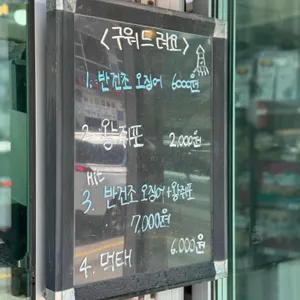 <구워드려요>
1. 반건조 오징어 6000원
2. 왕쥐포 2.000원
Hit
3. 반건조 오징어+왕쥐포
7,000원
4. 먹태 6.000원